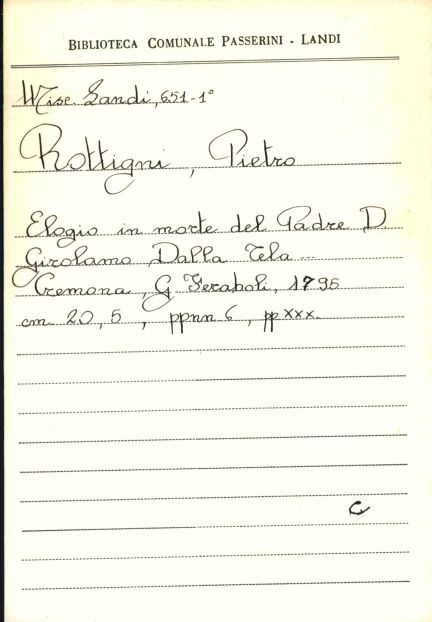 BIBLIOTECA COMUNALE PASSERINI - LANDI
Misc. Landi, 651-1°
Rottigni, Pietro
Elogio in morte del Padre D.
Girolamo Dalla Tela ...
Cremona, G Feraboli, 1795
cm. 20,5, ppnn 6, pp xxx.
C